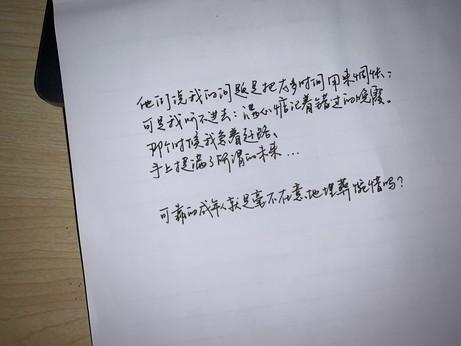 他们说我的问题是把太多时间用来惆怅；
可是我听不进去：满心惦记着错过的晚霞。
那个时候我急着赶路、
手上提满了所谓的未来...
可靠的成年人就是毫不在意地埋葬惋惜吗？